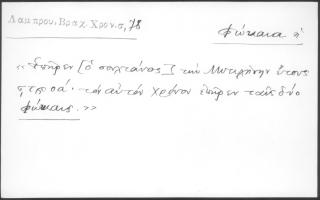 Λαμπρου, Βραχ. Χρον. σ, 78
Φώκαια ἡ
«ἐπῆρεν [ὁ σουλτάνος] τὴν Μυτιλήνην ἔτους
τὸν αὐτὸν χρόνον ἐπῆρεν ταῖς δύο
Φώκαις.»